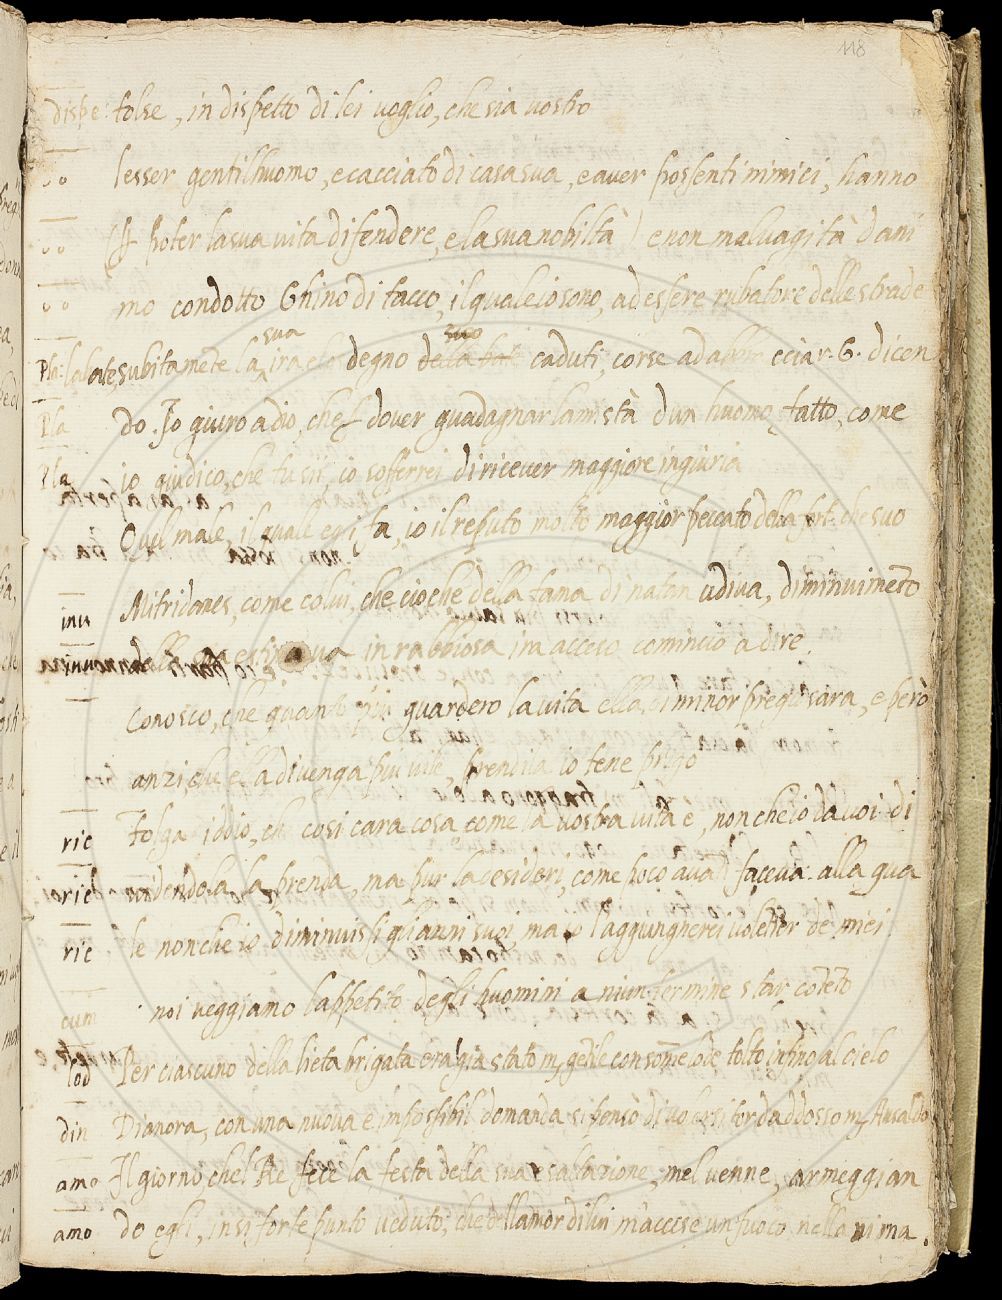 118
dispe: tolse, in dispetto di lei voglio, che sia vostro
lesser gentilhuomo, e cacciato di casa sua, e aver possenti nimici, hanno
poter la sua vita difendere, e la sua nobiltà) e non malvagità dani
mo condotto Ghino di tacco, il quale io sono, ad essere rubatore delle strade
Pla: subitamẽte la sua ira degno caduti, corse ad cciar. G. dicen
Pla do. Io giuro a dio, che dover guadagnar lamistà dun huomo fatto, come
Pla io giudico, che tu sii, io sofferrei di ricever maggiore ingiuria
Quel male, il quale egli fa, io il reputo molto maggior peccato della fort. che suo
inu Mitridanes, come colui, che cio che della fama di natan udiva, diminuimẽto
della estimava in rabbiosa ira acceso comincio a dire.
Conosco, che quanto piu guardero la vita ella di minor pregio sara, e però
anzi che ella divenga piu vile, prendila io tene priego
ric Tolga iddio, che cosi cara cosa come la vostra vita è, non che io da voi di
ric videndola la prenda, ma pur la desideri, come poco avãti faceva. alla qua
ric le non che io diminuissi gli anni suoi, ma io laggiungnerei volẽtier de miei
cum noi veggiamo lappetito degli huomini a niun termine star cõtẽto
lod Per ciascuno della lieta brigata era già stato m gẽtile con som̃e lode tolto infino al cielo
din Dianora, con una nuova e impossibil domanda si pensò di volersi tor daddosso m Ansaldo
amo Il giorno chel Re fece la festa della sua esaltazione, mel venne, armeggian
amo do egli, in si forte punto veduto, che dellamor di lui maccese un fuoco nellanima.